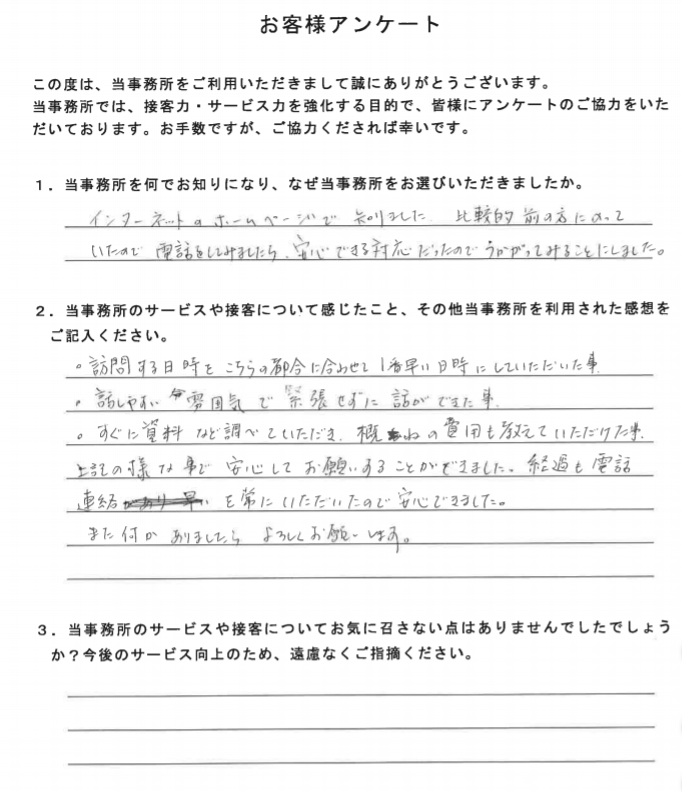 お客様アンケート
この度は、当事務所をご利用いただきまして誠にありがとうございます。
当事務所では、接客力・サービス力を強化する目的で、皆様にアンケートのご協力をいた
だいております。お手数ですが、ご協力くだされば幸いです。
1．当事務所を何でお知りになり、なぜ当事務所をお選びいただきましたか。
インターネットのホームページで 知りました 比較的 前の方にのって
いたので 電話をしてみましたら、安心できる対応だったので うかがってみることにしました。
2．当事務所のサービスや接客について感じたこと、その他当事務所を利用された感想を
ご記入ください。
。訪問する日時を こちらの都合に合わせて 1番早い日時 にしていただいた事
。話しやすい 雰囲気で 緊張せずに 話ができた事
。すぐに資料 など調べていただき、概ねの費用も教えていただけた事、
上記の様な事で 安心して お願いすることができました。経過も電話
連絡 を常にいただいたので安心できました。
また何か ありましたら よろしくお願いします。
3．当事務所のサービスや接客についてお気に召さない点はありませんでしたでしょう
か？今後のサービス向上のため、遠慮なくご指摘ください。